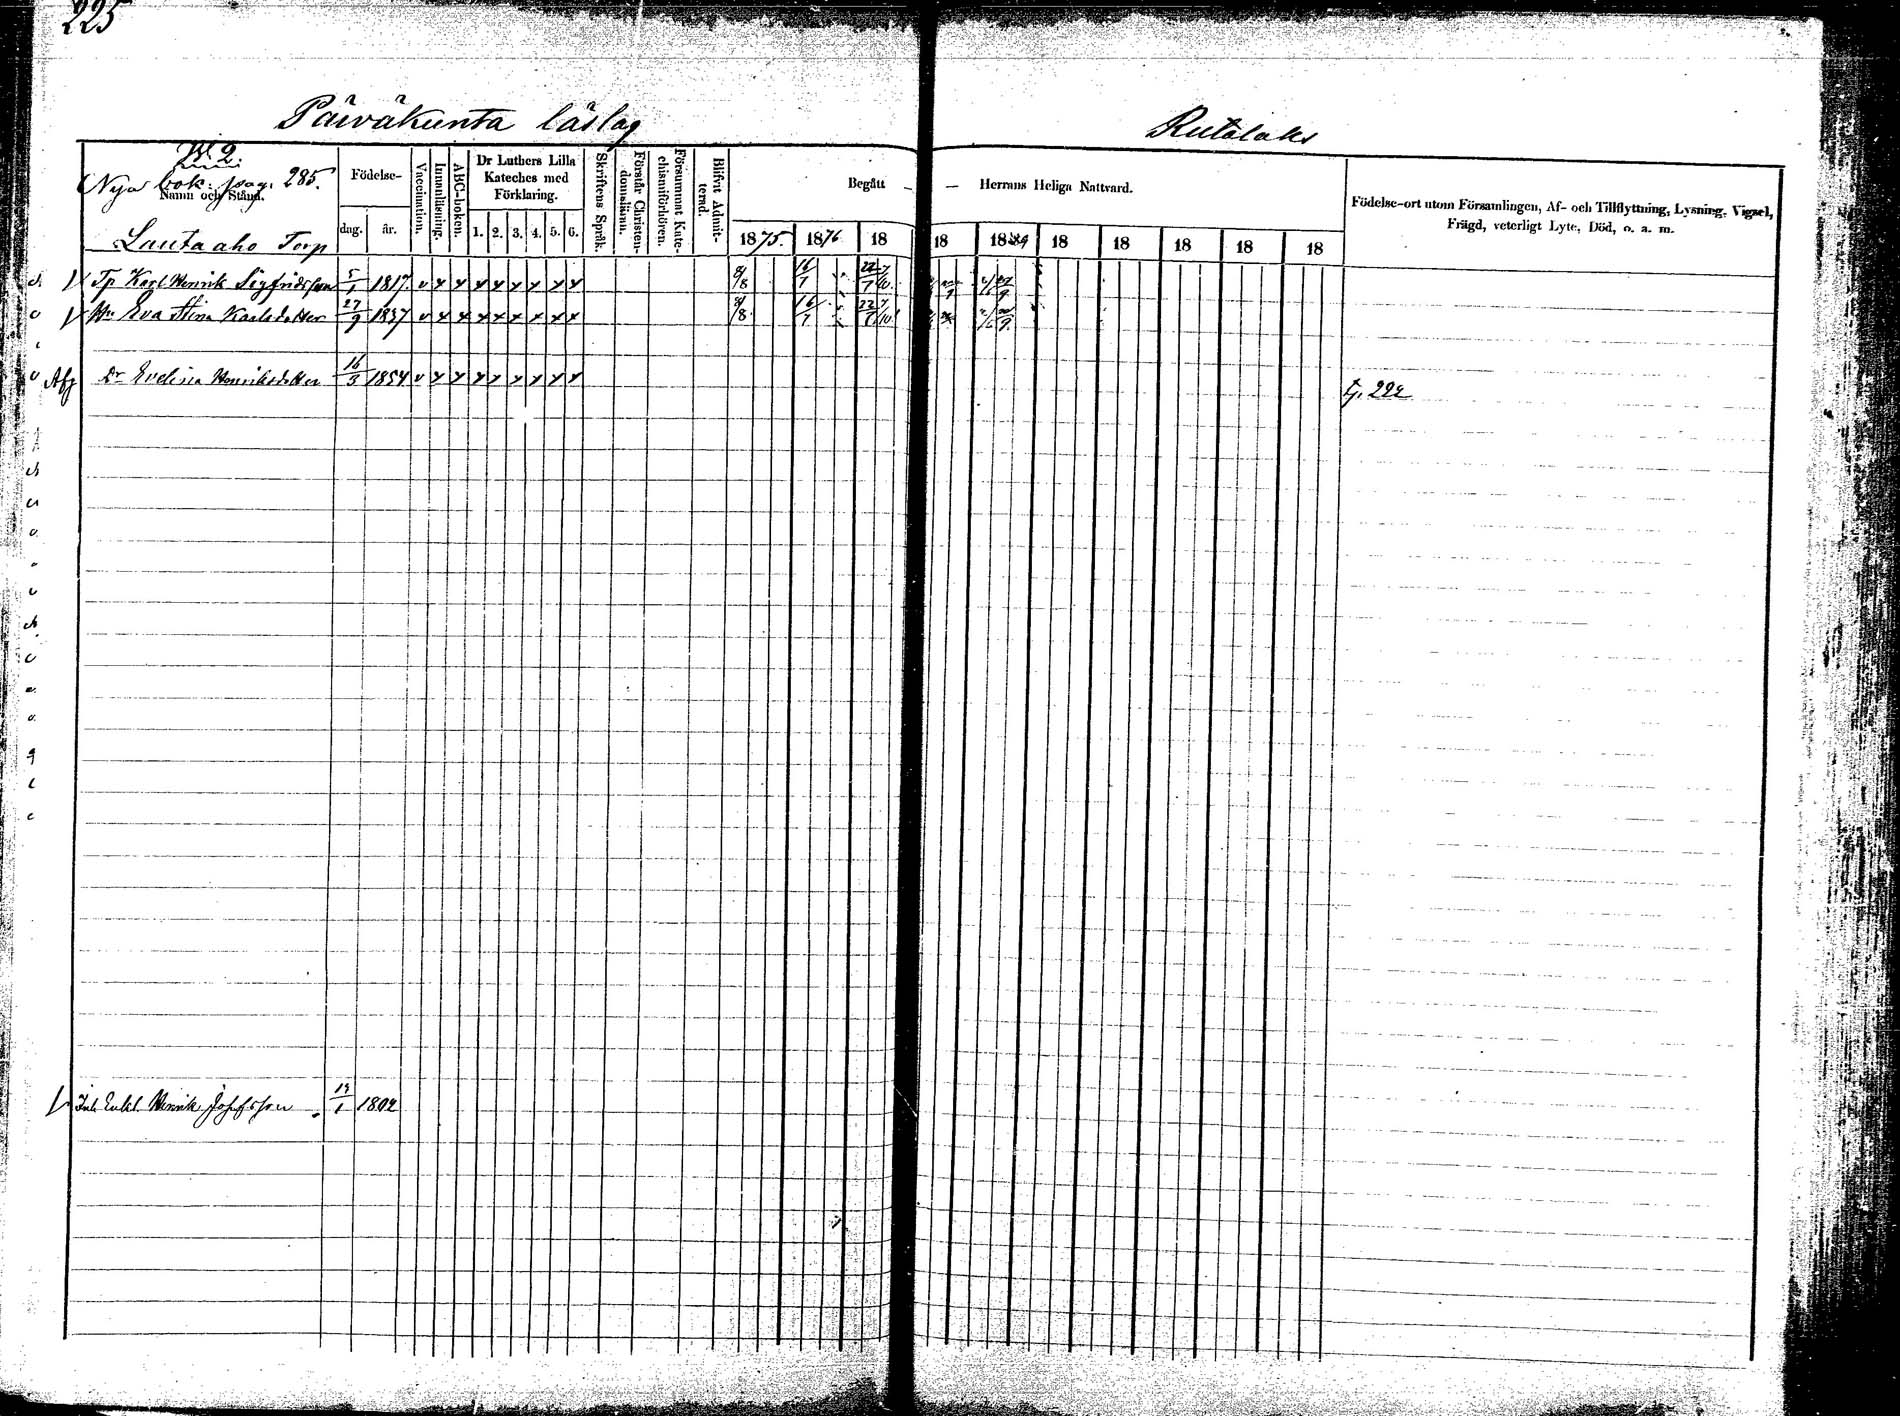 225
Päiväkunta läslag
Rutalaks
№ 2.
Nya bok: pag. 285.
Namn och Stånd.
Lauta aho Torp
Födelse-
dag. år.
Vaccination.
Innanläsning.
ABC-boken.
Dr Luthers Lilla Kateches med Förklaring.
1. 2. 3. 4. 5. 6.
Skriftens Språk.
Förstår Christendomsläran.
Försummat Katechismiförhören.
Blifvit Admitterad.
Begått — — Herrans Heliga Nattvard.
1875. 1876 18 18 18 18 18 18 18 18
Födelse-ort utom Församlingen, Af- och Tillflyttning, Lysning, Vigsel, Frägd, veterligt Lyte, Död, o. a. m.
Tp Karl Henrik Sigfridsson 5/1 1817. v x x x x x x x x 8/8 16/7 22/7
Hu Eva Stina Karlsdotter 27/9 1837 v x x x x x x x x 8/8 16/7 22/7
Afg Dr Evelina Henriksdotter 16/3 1854 v x x x x x x x x tj. 222
Inh Enkl. Henrik Josefsson 19/1 1802